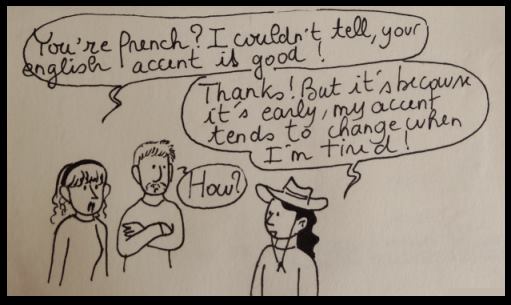 You're french? I couldn't tell, your
english accent is good!
Thanks! But it's because
it's early, my accent
tends to change when
I'm tired!
How?